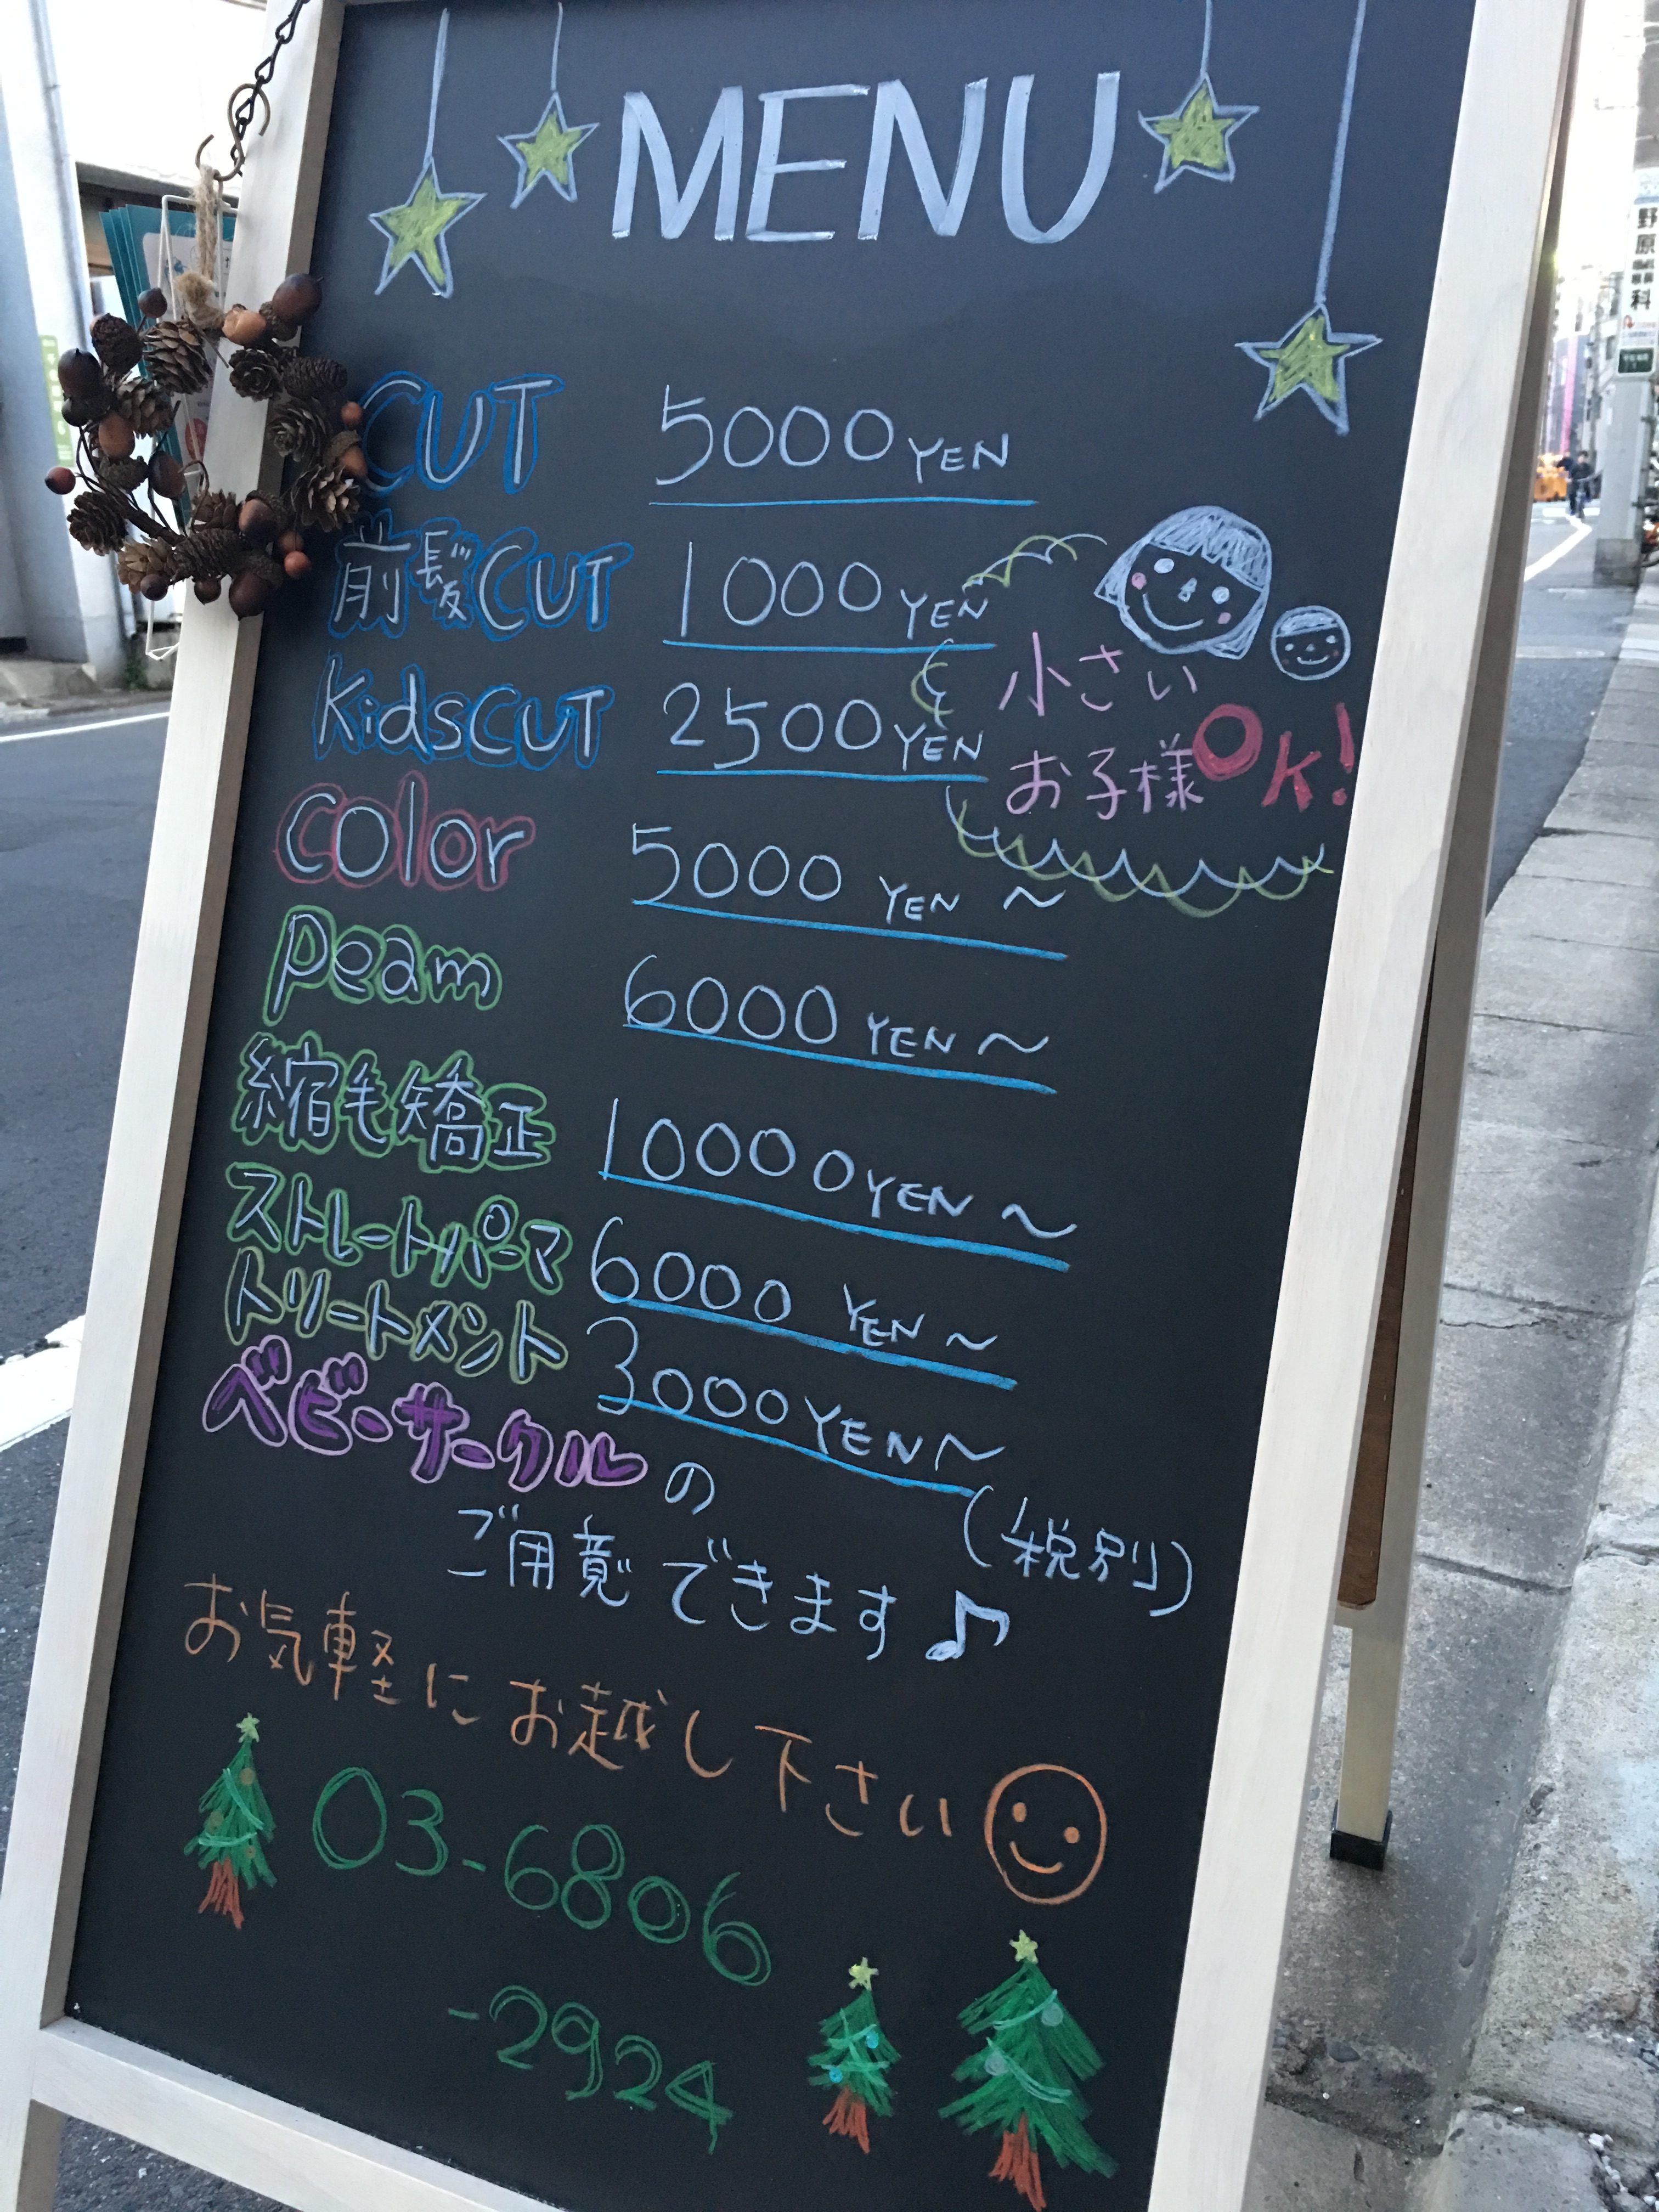 MENU
CUT 5000 YEN
前髪CUT 1000 YEN
KidsCUT 2500 YEN
小さい
お子様OK!
Color 5000 YEN 〜
Peam 6000 YEN 〜
縮毛矯正 10000 YEN 〜
ストレートパーマ 6000 YEN 〜
トリートメント 3000 YEN〜
(税別)
ベビーサークルの
ご用意できます♪
お気軽にお越し下さい
03-6806
-2924
野原
科